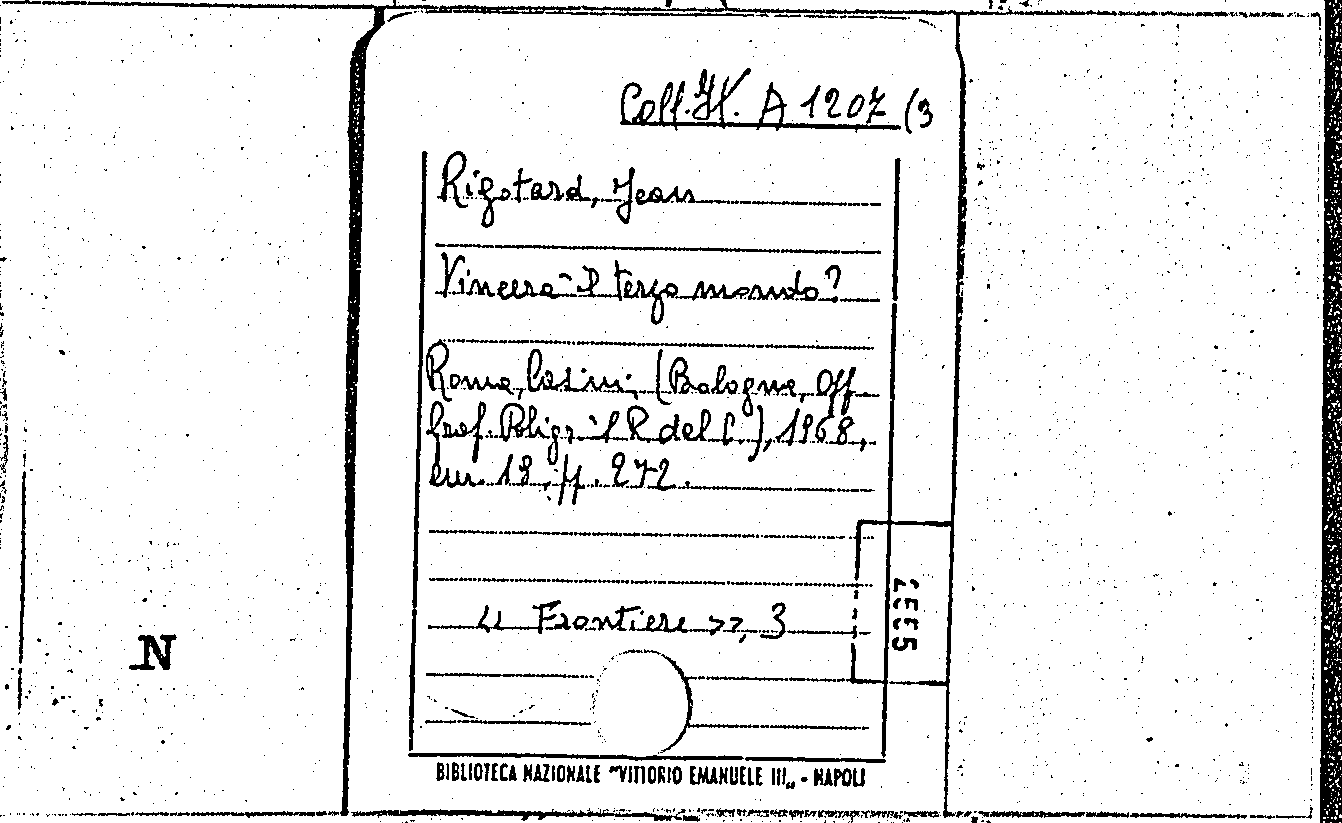 Coll. It. A 1207 (3
Rigotard, Jean
Vincerà il terzo mondo?
Roma, Casini, (Bologna, Off.
Graf. Poligr. il R. del C.), 1968,
cm. 18, pp. 272.
<< Frontiere >>, 3
N
BIBLIOTECA NAZIONALE "VITTORIO EMANUELE III„ - NAPOLI